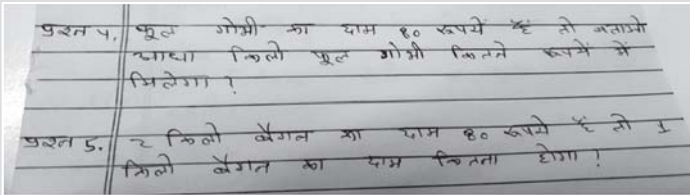 प्रश्न 4. फूल गोभी का दाम 80 रूपये हैं तो बताओ
आधा किलो फूल गोभी कितने रूपये में
मिलेगा ?
प्रश्न 5. 2 किलो बैगन का दाम 80 रूपये हैं तो 1
किलो बैगन का दाम कितना होगा ?